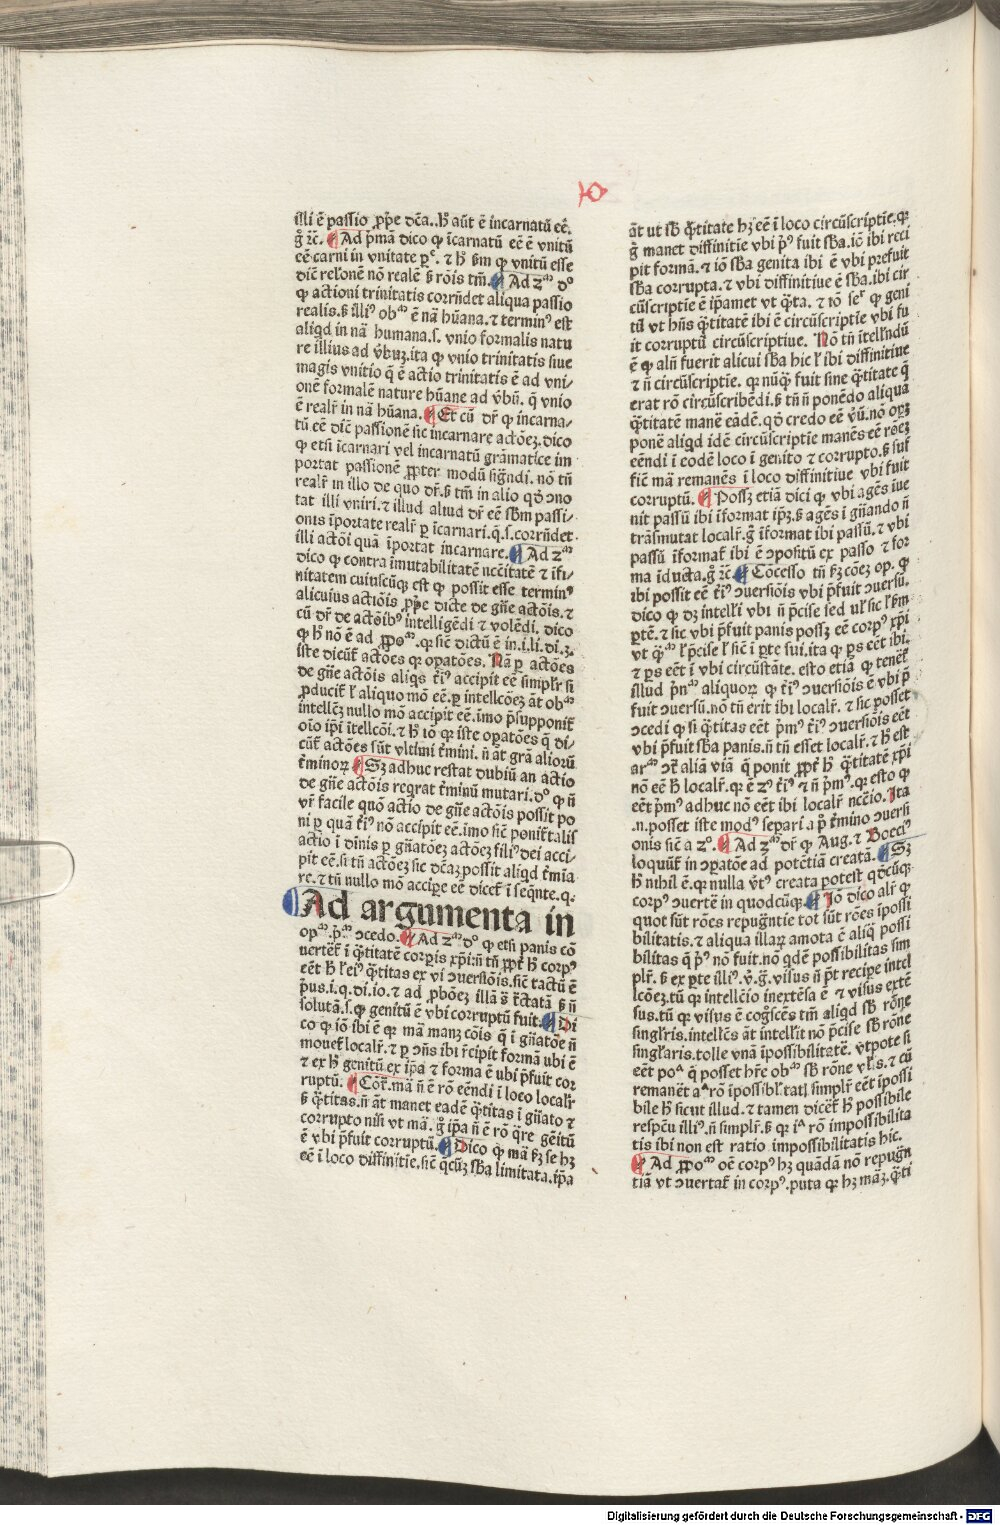 illi ē passio ꝓp̄e dc̄a. h̄ aūt ē incarnatū eē.
g̊ ꝛc̄. Ad p̄mā dico ꝙ īcarnatū eē ē vnitū
eē carni in vnitate ꝑᵉ. ⁊ h̄ ẜm ꝙ vnitū esse
dic̄ rel'onē nō realē ẜ rōis tm̄. Ad zᵐ dº
ꝙ actioni trinitatis corrn̄det aliqua passio
realis. ẜ illi⁹ obᵐ ē nā hūana. ⁊ termin⁹ est
aliqd in nā humana. s. vnio formalis natu
re illius ad v̄buꝫ. ita ꝙ vnio trinitatis siue
magis vnitio q̄ ē actio trinitatis ē ad vni-
onē formalē nature hūane ad v̄bū. q̄ vnio
ē realr̄ in nā hūana. Et cū dr̄ ꝙ incarna-
tū eē dic̄ passionē sic̄ incarnare actōeꝫ. dico
ꝙ etsi īcarnari vel incarnatū grāmatice im
portat passionē ꝓpter modū sign̄di. nō tn̄
realr̄ in illo de quo dr̄. ẜ tm̄ in alio qd̄ ↄno
tat illi vniri. ⁊ illud aliud dr̄ eē ẜbm passi-
onis īportate realr̄ ꝑ īcarnari. q̄. s. corrn̄det
illi actōi quā īportat incarnare. Ad zᵐ
dico ꝙ contra īmutabilitatē nccītatē ⁊ īfi-
nitatem cuiuscūqꝫ est ꝙ possit esse termin⁹
alicuius actiōis ꝓp̄e dicte de gn̄e actōis. ⁊
cū dr̄ de actōib⁹ intelligēdi ⁊ volēdi. dico
ꝙ h̄ nō ē ad ꝓpoᵐ. qꝛ sic̄ dictū ē in. i. li. di. 3.
iste dicūt̄ actōes qꝛ oꝑatōes. Nā ꝑ actōes
de gn̄e actōis aliqs t̄i⁹ accipit eē simplr̄ si
ꝓducit̄ l' aliquo mō eē. ꝑ intellcōeꝫ āt obᵐ
intellc̄ꝫ nullo mō accipit eē. īmo p̄supponit̄
oīo ip̄i ītellcōi. ⁊ h̄ iō qꝛ iste oꝑatōes q̄ di-
cūt̄ actōes sūt vltimi t̄mini. n̄ āt grā alioꝝ
t̄minoꝝ Sꝫ adhuc restat dubiū an actio
de gn̄e actōis reqrat t̄minū mutari. dº ꝙ n̄
vr̄ facile quō actio de gn̄e actōis possit po
ni ꝑ quā t̄i⁹ nō accipit eē. īmo sic̄ ponit̄ talis
actio ī dinis ꝑ gn̄atōeꝫ actōeꝫ fili⁹ dei acci-
pit eē. si tn̄ actōeꝫ sic dc̄aꝫ possit aliqd t̄mīa
re. ⁊ tn̄ nullo mō accipe eē dicet̄ ī seqn̄te. q.
Ad argumenta in
opᵐ. p̄ᵐ ↄcedo. Ad zᵐ dº ꝙ etsi panis cō
uertet̄ ī q̄titatē corꝑis xp̄i: n̄ tn̄ ꝓpt̄ h̄ corp⁹
eēt h̄ l' ei⁹ q̄titas ex vi ↄuersiōis. sic̄ tactū ē
p̄us. i. q. di. io. ⁊ ad ꝓbōeꝫ illā ð t̄ctatā ẜ n̄
solutā. s. ꝙ genitū ē vbi corruptū fuit. Di
co ꝙ iō ibi ē qꝛ mā manꝫ cōis q̄ ī gn̄atōe n̄
mouet̄ localr̄. ⁊ ꝑ ↄn̄s ibi r̄cipit formā ubi ē
⁊ ex h̄ genitū ex ip̄a ⁊ forma ē ubi p̄fuit cor
ruptū. Cōt̄. mā n̄ ē rō eēndi ī loco localr̄
ẜ q̄titas. n̄ āt manet eadē q̄titas ī gn̄ato ⁊
corrupto nisi vt mā. g̊ ip̄a n̄ ē rō q̄re gēitū
ē vbi p̄fuit corruptū. Dico ꝙ mā ẜꝫ se hꝫ
eē ī loco diffinitīe. sic̄ q̄cūqꝫ sb̄a limitata. ip̄a
āt ut sb̄ q̄titate hꝫ eē ī loco circūscriptīe. qꝛ
g̊ manet diffinitie vbi p⁹ fuit sb̄a. iō ibi reci
pit formā. ⁊ iō sb̄a genita ibi ē vbi prefuit
sb̄a corrupta. ⁊ vbi diffinitiue ē sb̄a. ibi cir
cūscriptīe ē ip̄amet vt q̄ta. ⁊ iō seʳ ꝙ geni
tū vt hn̄s q̄titatē ibi ē circūscriptīe vbi fu
it corruptū circūscriptiue. Nō tn̄ ītell'ndū
ē ꝙ aln̄ fuerit alicui sb̄a hic l' ibi diffinitiue
⁊ n̄ circūscriptīe. qꝛ nūq̄ fuit sine q̄titate q̄
erat rō circūscribēdi. ẜ tn̄ n̄ ponēdo aliqua
q̄titatē manē eādē. qd̄ credo eē v̄ū. nō oꝫ
ponē aliqd idē circūscriptīe manēs eē rōeꝫ
eēndi ī eodē loco ī genito ⁊ corrupto. ẜ suf
fic̄ mā remanēs ī loco diffinitiue vbi fuit
corruptū. Possꝫ etiā dici ꝙ vbi agēs iue
nit passū ibi īformat ip̄ꝫ. ẜ agēs ī gn̄ando n̄
trāsmutat localr̄. g̊ īformat ibi passū. ⁊ vbi
passū īformat̄ ibi ē ↄpositū ex passo ⁊ for
ma īducta. g̊ ꝛc̄. Cōcesso tn̄ ẜꝫ cōeꝫ op. ꝙ
ibi possit eē t̄i⁹ ↄuersiōis vbi p̄fuit ↄuersū.
dico ꝙ dꝫ intelli vbi n̄ p̄cise sed ul' sic l' ẜm
ꝑtē. ⁊ sic vbi p̄fuit panis possꝫ eē corp⁹ xp̄i
vt q̄ᵐ l' p̄cise l' sic̄ ī ꝑte sui. ita ꝙ ꝑs eēt ibi.
⁊ ꝑs eēt ī vbi circūstāte. esto etiā ꝙ tenet̄
illud p̄nᵐ aliquoꝝ ꝙ t̄i⁹ ↄuersiōis ē vbi p̄
fuit ↄuersū. nō tn̄ erit ibi localr̄. ⁊ sic posset
ↄcedi ꝙ si q̄titas eēt p̄m⁹ t̄i⁹ ↄuersiōis eēt
vbi p̄fuit sb̄a panis. n̄ tn̄ esset localr̄. ⁊ h̄ est
arᵐ ↄt̄ aliā viā q̄ ponit ꝓpt̄ h̄ q̄titatē xp̄i
nō eē h̄ localr̄. qꝛ ē z⁹ t̄i⁹ ⁊ n̄ p̄m⁹. qꝛ esto ꝙ
eēt p̄m⁹ adhuc nō eēt ibi localr̄ ncc̄io. Ita
.n. posset iste mod⁹ seꝑari a pº t̄mino ↄuersi
onis sic̄ a zº. Ad zᵐ dr̄ ꝙ Aug. ⁊ Boeci⁹
loquūt̄ in oꝑatōe ad potētiā creatā. Sꝫ
h̄ nihil ē. qꝛ nulla v̄t⁹ creata potest qd̄cūqꝫ
corp⁹ ↄuertē in quodcūqꝫ. Iō dico alr̄ ꝙ
quot sūt rōes repugn̄tie tot sūt rōes īpossi
bilitatis. ⁊ aliqua illaꝝ amota ē aliq̄ possi
bilitas q̄ p⁹ nō fuit. nō qdē possibilitas sim
plr̄. ẜ ex ꝑte illi⁹. v̄. g̅. visus n̄ pt̄ recipe intel
lcōeꝫ. tū qꝛ intellc̄io inextēsa ē ⁊ visus extē
sus. tū qꝛ visus ē cog̅scēs tm̄ aliqd sb̄ rōne
singl'ris. intellc̄s āt intell'it nō p̄cise sb̄ rōne
singl'aris. tolle vnā īpossibilitatē. vtpote si
eēt poᵃ q̄ posset hr̄e obᵐ sb̄ rōne vl's. ⁊ cū
remanēt aᵃ rō īpossibl'tatꝭ simplr̄ eēt īpossi
bile h̄ sicut illud. ⁊ tamen dicēt̄ h̄ possibile
respcū illi⁹. n̄ simplr̄. ẜ qꝛ iᵃ rō impossibilita
tis ibi non est ratio impossibilitatis hic.
Ad ꝓpoᵐ oē corp⁹ hꝫ quādā nō repug̅n
tiā vt ↄuertat̄ in corp⁹. puta qꝛ hꝫ māꝫ. q̄ti
Digitalisierung gefördert durch die Deutsche Forschungsgemeinschaft - DFG